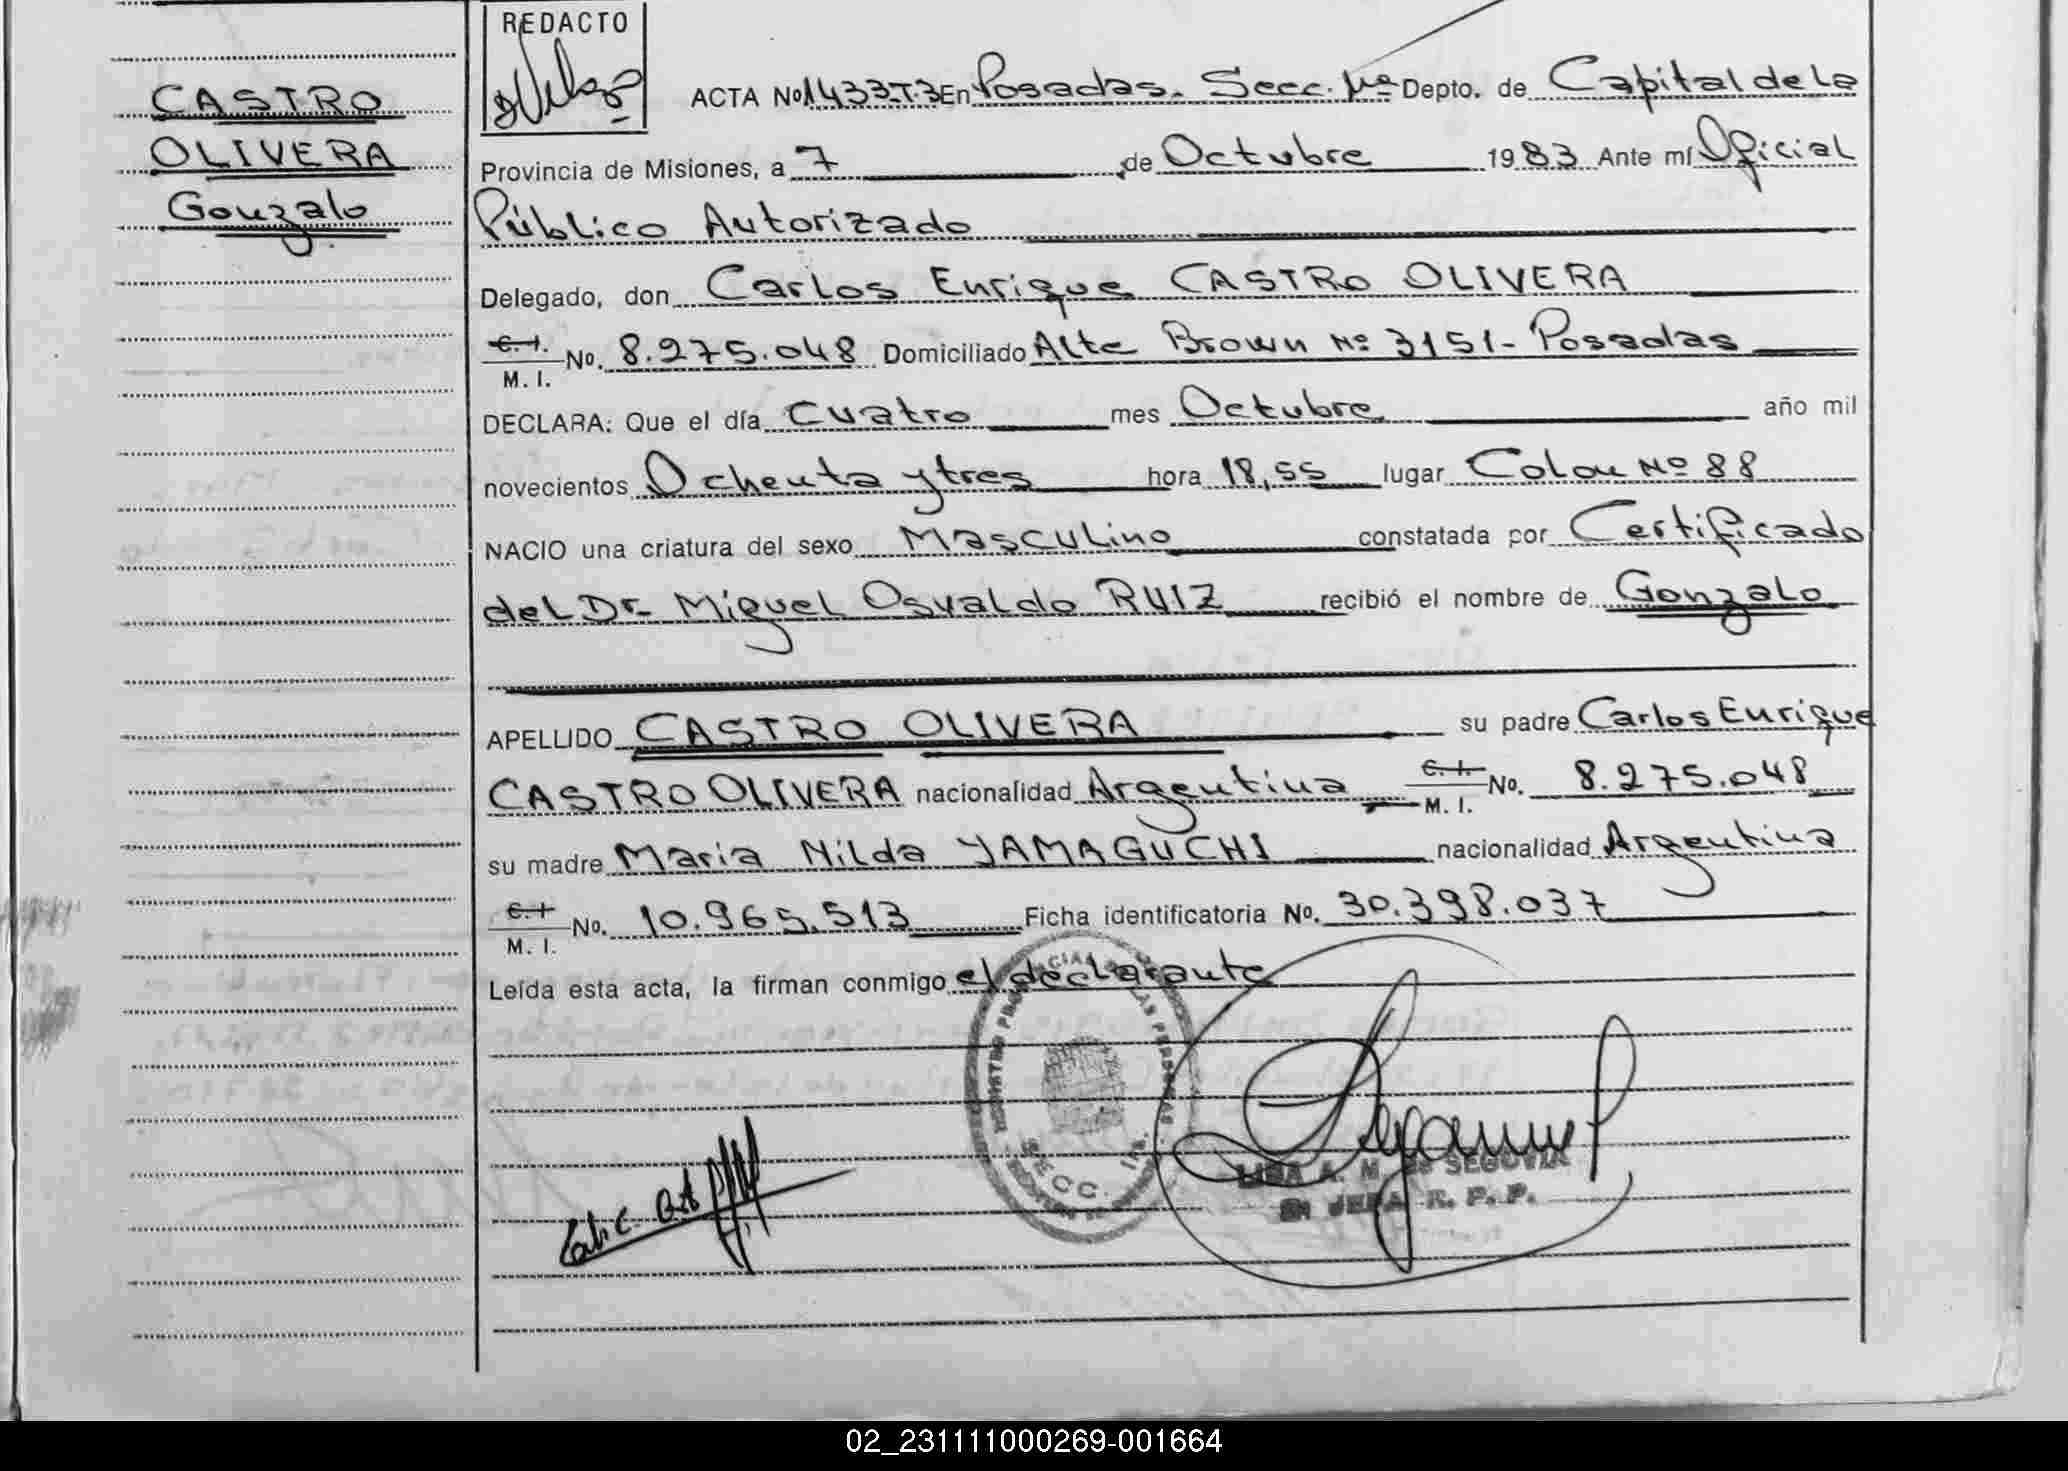 CASTRO
OLIVERA
Gonzalo
REDACTO
ACTA No 1433-T-3 En Posadas. Secc. 1ra Depto. de Capital de la
Provincia de Misiones, a 7 de Octubre 1983 Ante mí Oficial
Público Autorizado
Delegado, don Carlos Enrique CASTRO OLIVERA
C. I.
M. I. No. 8.275.048 Domiciliado Alte Brown Nº 3151- Posadas
DECLARA: Que el día Cuatro mes Octubre año mil
novecientos Ochenta y tres hora 18,55 lugar Colon Nº 88
NACIO una criatura del sexo Masculino constatada por Certificado
del Dr. Miguel Osvaldo RUIZ recibió el nombre de Gonzalo
APELLIDO CASTRO OLIVERA su padre Carlos Enrique
CASTRO OLIVERA nacionalidad Argentina C. I. M. I. No. 8.275.048
su madre Maria Nilda YAMAGUCHI nacionalidad Argentina
C. I.
M. I. No. 10.965.513 Ficha identificatoria No. 30.398.037
Leída esta acta, la firman conmigo el declarante
SECC. 1ra.
A. M. de SEGOVIA
JEFA R. P. P.
02_231111000269-001664